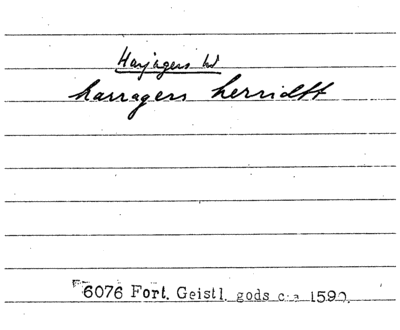 Harjagers hd
harragers herridtt
6076 Fort. Geistl. gods c:a 1590.